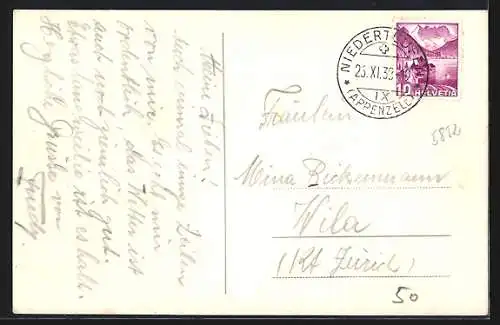 Meine Lieben!
Noch einmal einige Zeilen
von mir. Es geht mir
ordentlich, das Wetter ist
auch noch ziemlich gut.
Etwas langweilig ist es halt.
Herzliche Grüsse von
Friedy
NIEDERTEUFEN
25.XI.38
IX
(APPENZELL)
10
HELVETIA
5812
Fräulein
Mina Bickermann
Wila
(Kt Zürich)
50